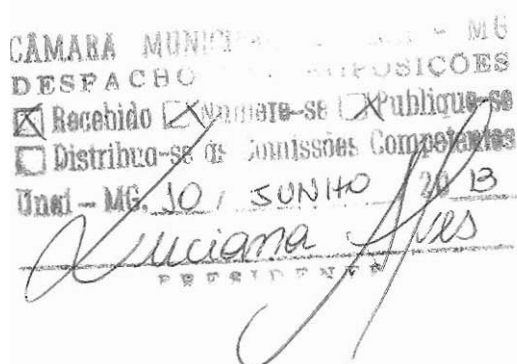 CÂMARA MUNICI - MG
DESPACHO POSIÇÕES
Recebido Numere-se Publique-se
Distribua-se às Comissões Competentes
Unaí - MG. 10 / JUNHO 20 13
Luciana Alves
PRESIDENTE